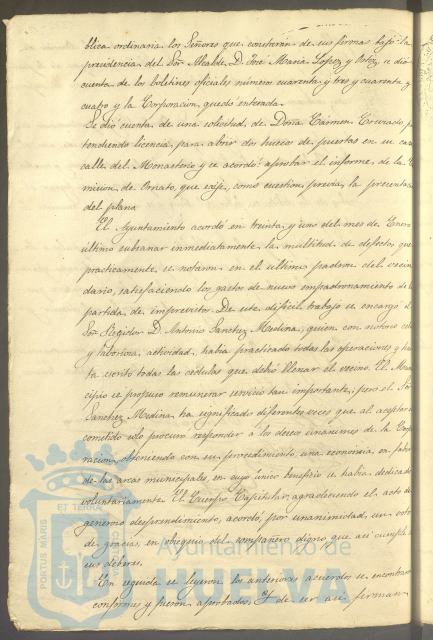 blica ordinaria los Señores que constarán de sus firmas bajo la
presidencia del Sor Alcalde D. José Maria Lopez y Ortiz, se dió
cuenta de los boletines oficiales números cuarenta y tres y cuarenta y
cuatro y la Corporacion, quedó enterada.
Se dió cuenta de una solicitud de Doña Carmen
tendiendo licencia para abrir dos huecos de puertas en su casa
calle del Monasterio y se acordó aprobar el informe de la Co
mision de Ornato, que exije, como cuestion previa, la presenta
del plano.
El Ayuntamiento acordó en treinta y uno del mes de Enero
último subsanar inmediatamente la multitud de defectos que
prácticamente se notaron en el último padron del vecin
dario, satisfaciendo los gastos de nuevo empadronamiento de la
partida de imprevistos. De este difícil trabajo se encargó el
Sor Regidor D. Antonio Sanchez Medina, quien con notorio celo
y laboriosa actividad, habia practicado todas las operaciones y has
ta escrito todas las cédulas que debió llenar el vecino. El Muni
cipio se propuso remunerar servicio tan importante; pero el Sor
Sanchez Medina ha significado diferentes veces que al aceptar
cometido solo procuró responder á los deseos unánimes de la Corpo
racion, obteniendo con su procedimiento una economia en favor
de las arcas municipales, en cuyo único beneficio se habia dedicado
voluntariamente. El Cuerpo Capitular, agradeciendo el acto de
generoso desprendimiento, acordó, por unanimidad, un voto
de gracias, en obsequio del compañero digno, que asi cumple
sus deberes.
En seguida se leyeron los anteriores acuerdos se encontraron
conformes y fueron aprobados. Y de ser asi firman
PORTUS MARIS
ET TERRÆ
Ayuntamiento de
HUELVA